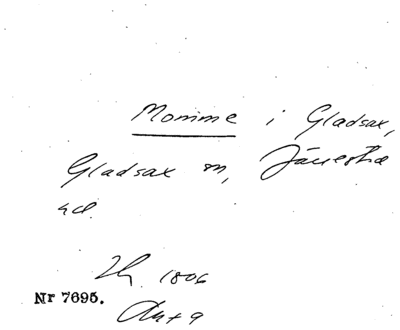 Momme i Gladsax,
Gladsax sn, Järrestad
hd.
1806
Nr 7695.